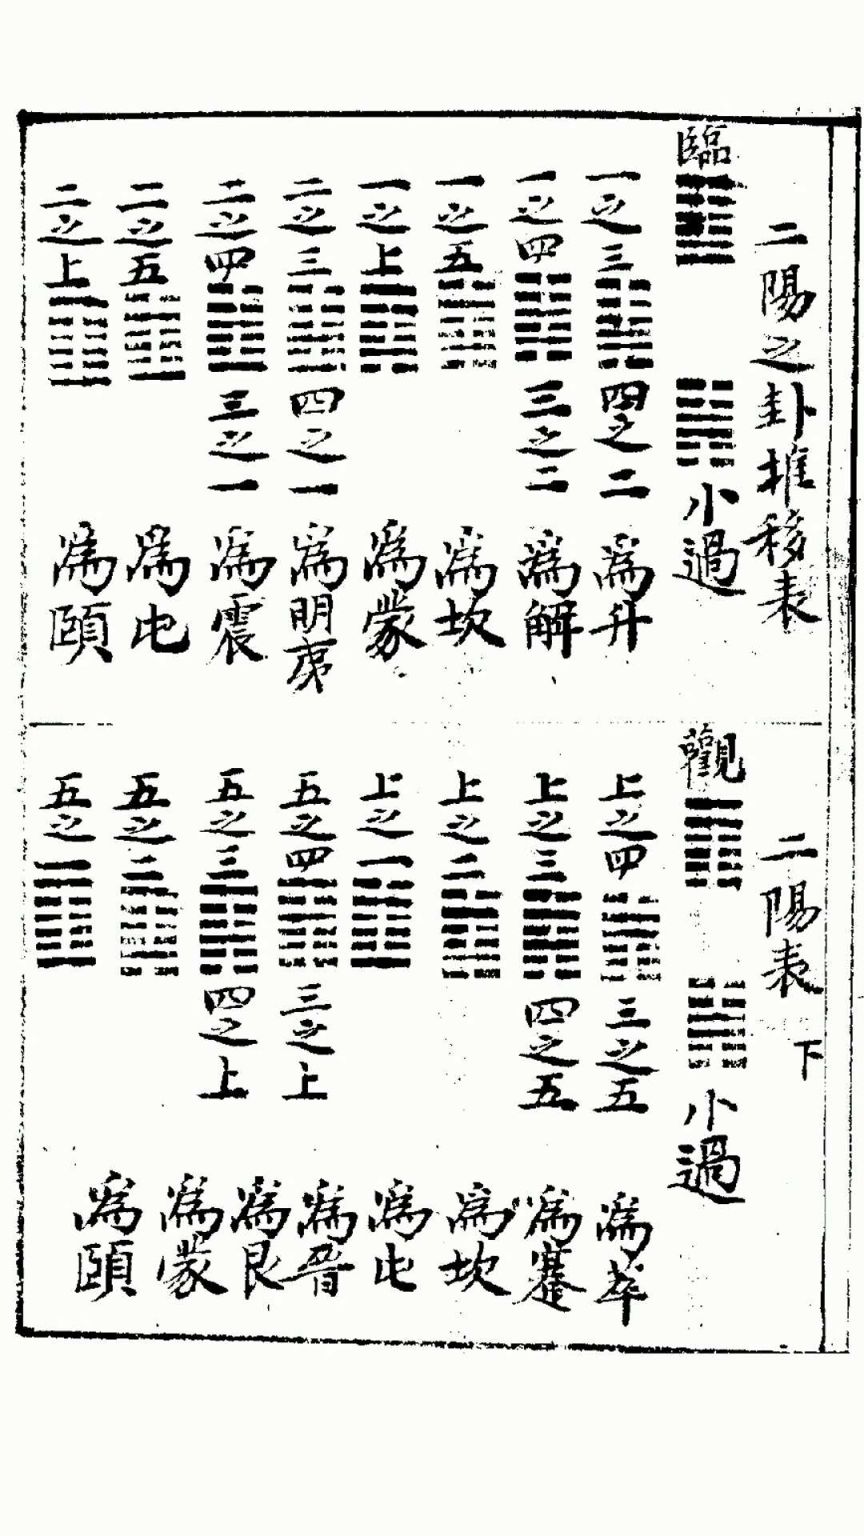 二陽之卦推移表
臨 小過
一之三 四之二 爲升
一之四 三之二 爲解
一之五 爲坎
一之上 爲蒙
二之三 四之一 爲明夷
二之四 三之一 爲震
二之五 爲屯
二之上 爲頤
二陽表 下
觀 小過
上之四 三之五 爲萃
上之三 四之五 爲蹇
上之二 爲坎
上之一 爲屯
五之四 三之上 爲晋
五之三 四之上 爲艮
五之二 爲蒙
五之一 爲頤